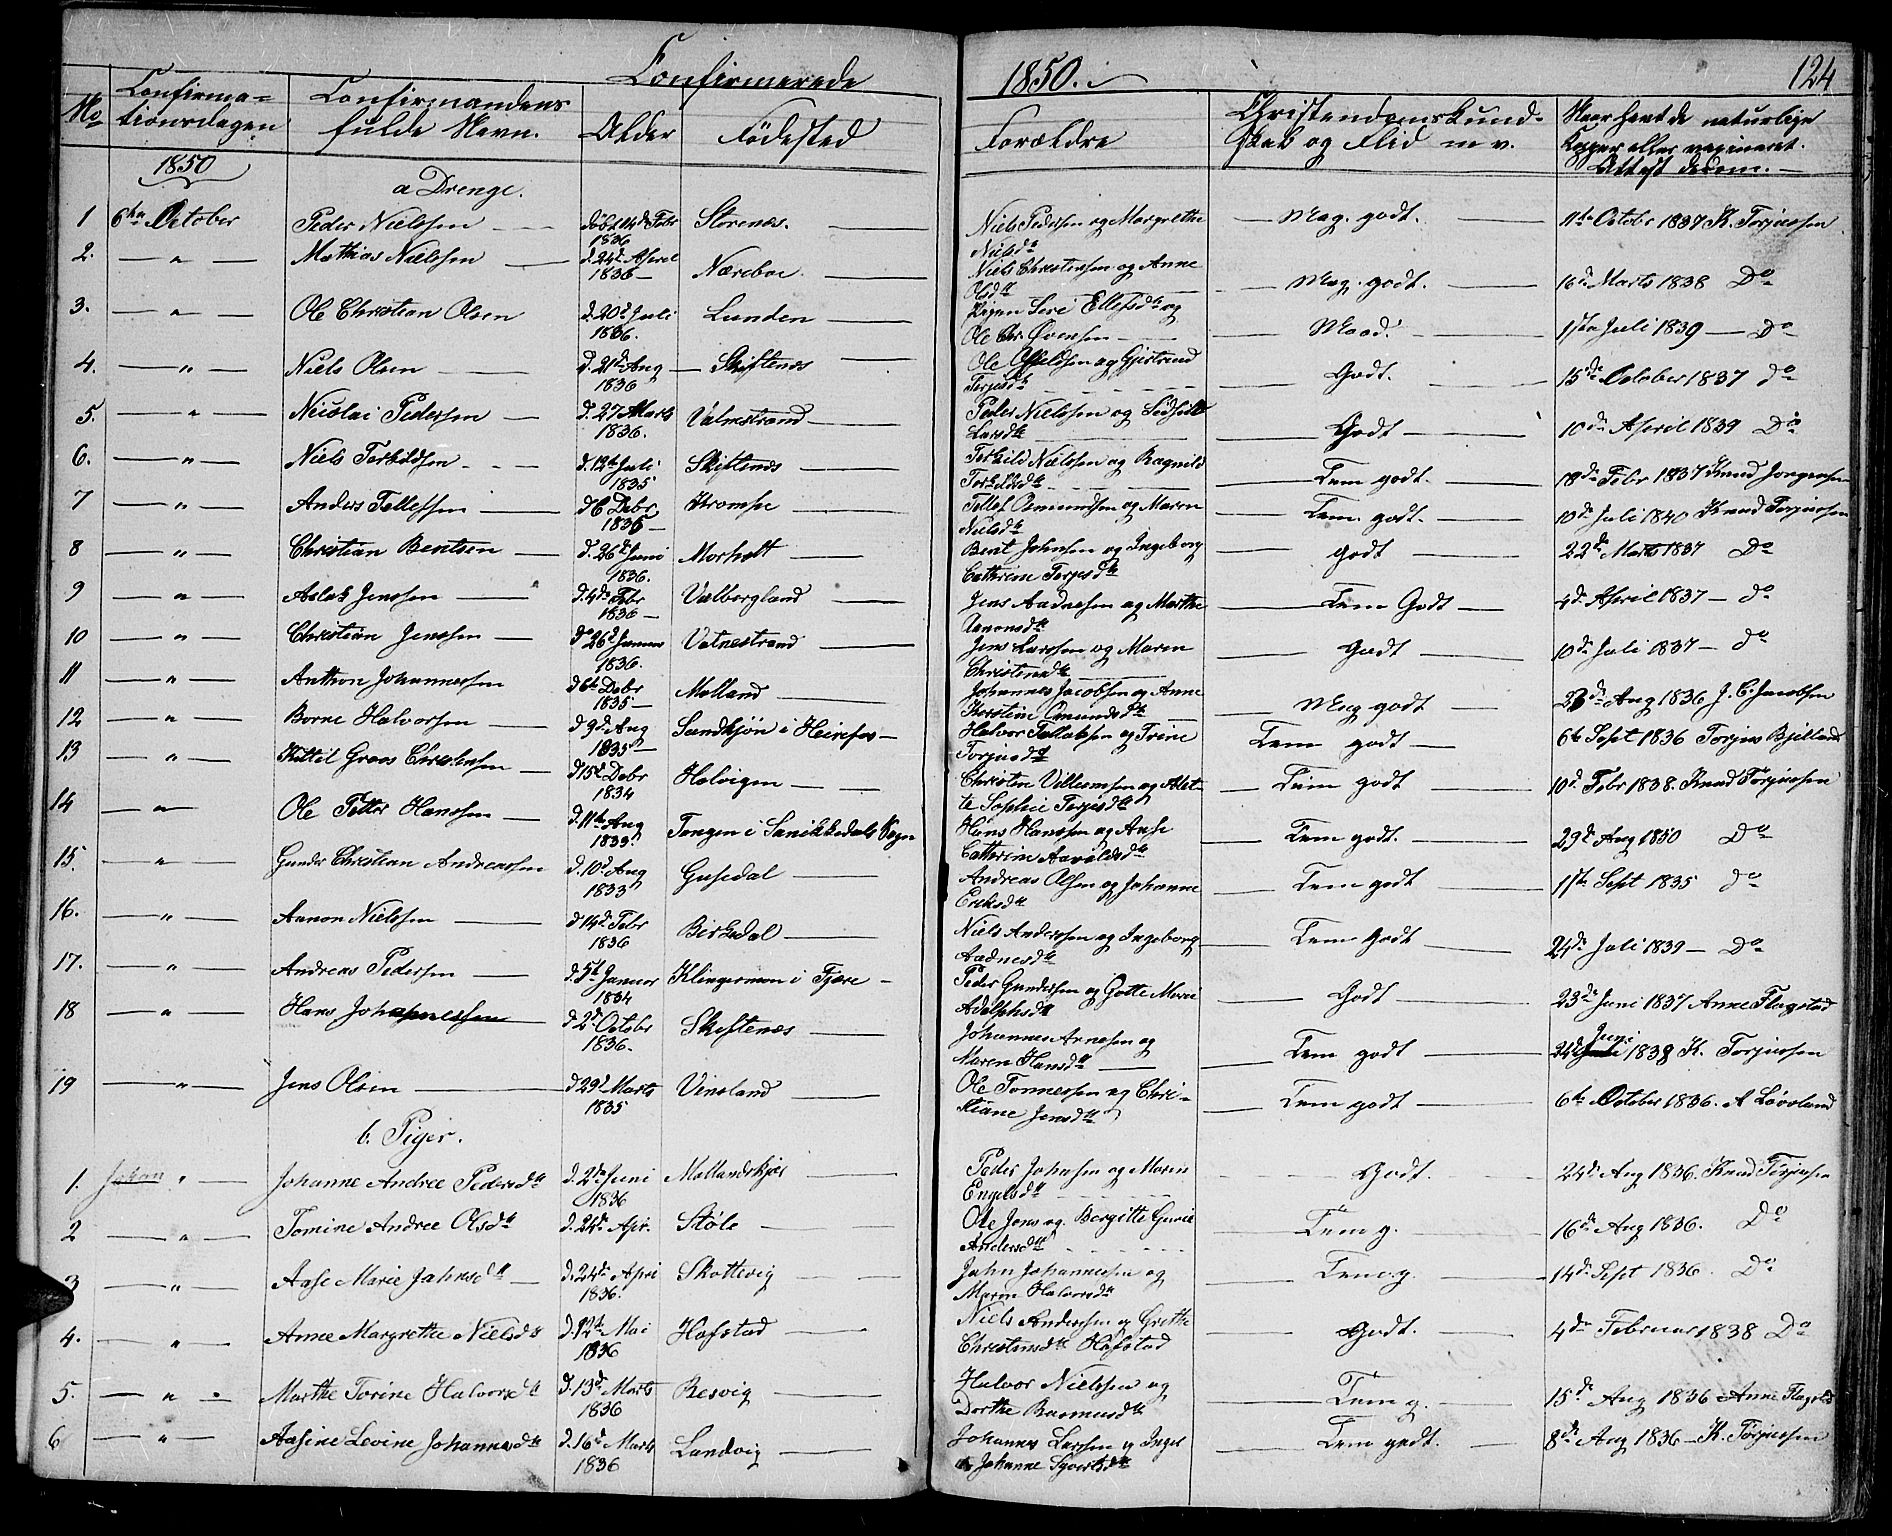 Confirmerede 1850. 124
No Confirmationsdagen Confirmandens fulde Navn. Alder Fødested Forældre Christendomskundskab og Flid m. v. Naar havt de naturlige Kopper eller vaccineret. Attest derom.
1850
a Drenge.
1 6te October Peder Nielssen døbt 14de Febr 1836 Storenæs. Niels Pedersen og Margrethe Nielsdtr Meg. godt. 11te Octobr 1837 K. Torjussen
2. — " — Mathias Nielssen d. 24de April 1836 Næreboe. Niels Christenssen og Anne Olsdtr Meg. godt. 16de Marts 1838 Do
3. — " — Ole Christian Olsen d. 20de Juli 1836. Lunden Pigen Siri Ellefsdtr og Ole Chr Øvensen Maad. 1ste Juli 1839 — Do
4. — " — Niels Olsen d. 21de Aug 1836 Skiftenes Ole og Gjertrud Terjesdtr Godt. 15de October 1837 do
5. — " — Nicolai Pedersen d. 27 Marts 1836. Valmstrand Peder Nielssen og Larsdtr Godt 10de April 1839 Do
6. — " — Niels Terkildsen d. 12te Juli 1835 Skiftenes Terkild Nielssen og Ragnild Torkildsdtr Tem godt. 18de Febr 1837 Knud Jørgensen
7 — " — Anders Tellefsen d 6 Debr 1835 Stromse Tellef Osmundsen og Maren Nielsdtr Tem. godt. 10de Juli 1840 Knud Torjussen
8 — " — Christian Bentsen d. 26de Juni 1836. Morholt Bent Johnsen og Ingeborg Cathrine Terjesdtr godt 22de Marts 1837 Do
9 — " — Aslak Jenssen d. 4de Febr 1836 — Valbergland Jens Aadnesen og Marthe Aanonsdtr Tem Godt 4de April 1837 — do
10 — " — Christian Jenssen d. 26de Januar 1836. Vatnestrand Jens Larssen og Maren Christensdtr Godt 10de Juli 1837 — do
11 — " — Anthon Johannessen d 6te Debr 1835 — Molland Johannes Jacobsen og Anne Kerstine Omundsdtr Meg godt 23de Aug 1836 J. C. Jacobsen
12 — " — Borne Halvorsen d 9de Aug 1835 — Sandkjøn i Heirefos Halvor Tallaksen og Trine Torjusdtr Tem godt 6te Sept 1836 Torjus Bjelland
13 — " — Kittil Groos Christensen d 15de Debr 1834 Holvigen Christen Villumsen og Alette Sophie Terjesdtr Tem godt 10de Febr 1838. Knud Torjussen
14 — " — Ole Petter Hanssen d. 11te Aug 1833. Tangen i Sanikkedals Sogn Hans Hanssen og Aase Cathrine Aavoldsdtr Tem godt. 29de Aug 1850 Do
15. — " — Gunder Christian Andreassen d. 10de Aug 1833 Gusedal Andreas Olsen og Johanne Eriksdtr Tem godt 11te Sept 1835 do
16. — " — Aanon Nielssen d 14de Febr 1836 Birkedal Niels Anderssen og Ingeborg Aadnesdtr Tem Godt 24de Juli 1839 — Do
17. — " — Andreas Pedersen d. 5te Januar 1834 Klingermoen i Fjære Peder Gundersen og Gotte Marie Adolphsdtr Godt 23de Juni 1837 Anne Flagstad
18 — " — Hans Johannessen d 2de Octobr 1836. Skiftenæs Johannes Arnesen og Maren Hansdtr Tem godt 24de Juni 1838 K. Torjussen
19 — " — Jens Olsen d 29de Marts 1835 Vinsland Ole Tønnessen og Christiane Jensdtr Tem godt 6te October 1836. A Løvsland
b. Piger.
1. Johan " — Johanne Andree Pedersdtr d. 2den Juni 1836 Mollandskjær Peder Johnsen og Maren Engelsdtr Godt. 24de Aug 1836. Knud Torjussen
2 " — Tomine Andree Olsdtr d. 24de Apr. Støle Ole Jens og Bergitte Gurie Andersdtr Tem g. 16de Aug 1836. Do
3 — " — Aase Marie Johnsdtr d. 24de Apri 1836. Skottevig John Johannessen og Maren Halvorsdtr Tem g. 14de Sept 1836. Do
4. — " — Anne Margrethe Nielsdtr d. 12te Mai 1836 Hofstad Niels Anderssen og Grethe Christensdtr Hofstad Godt. 4de Februar 1838 Do
5. — " — Marthe Torine Halvorsdtr d. 13de Marts 1836 Resvig Halvor Nielssen og Dorthe Rasmusdtr Tem g. 15de Aug 1836 Anne Flagstad
6 — " — Aasine Levine Johannesdtr d. 16de Marts 1836 Landvig Johannes Larssen og Johanne Syvertsdtr Tem godt. 8de Aug 1836 — K. Torjussen